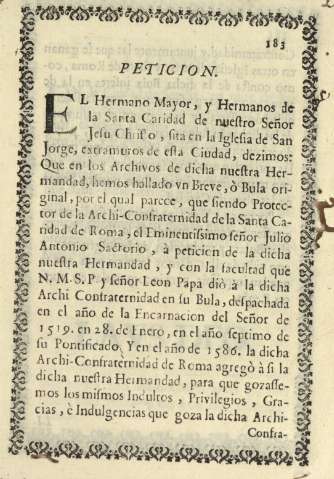 183
PETICION.
EL Hermano Mayor, y Hermanos de
la Santa Caridad de nuestro Señor
Jesu Christo, sita en la Iglesia de San
Jorge, extramuros de esta Ciudad, dezimos:
Que en los Archivos de dicha nuestra Her-
mandad, hemos hallado vn Breve, ò Bula ori-
ginal, por el qual parece, que siendo Protec-
tor de la Archi-Confraternidad de la Santa Ca-
ridad de Roma, el Eminentissimo señor Julio
Antonio Sactorio, à peticion de la dicha
nuestra Hermandad, y con la facultad que
N. M. S. P. y señor Leon Papa diò à la dicha
Archi Confraternidad en su Bula, despachada
en el año de la Encarnacion del Señor de
1519. en 28. de Enero, en el año septimo de
su Pontificado, Y en el año de 1586. la dicha
Archi-Confraternidad de Roma agregò à si la
dicha nuestra Hermandad, para que gozasse-
mos los mismos Indultos, Privilegios, Gra-
cias, è Indulgencias que goza la dicha Archi-
Confra-